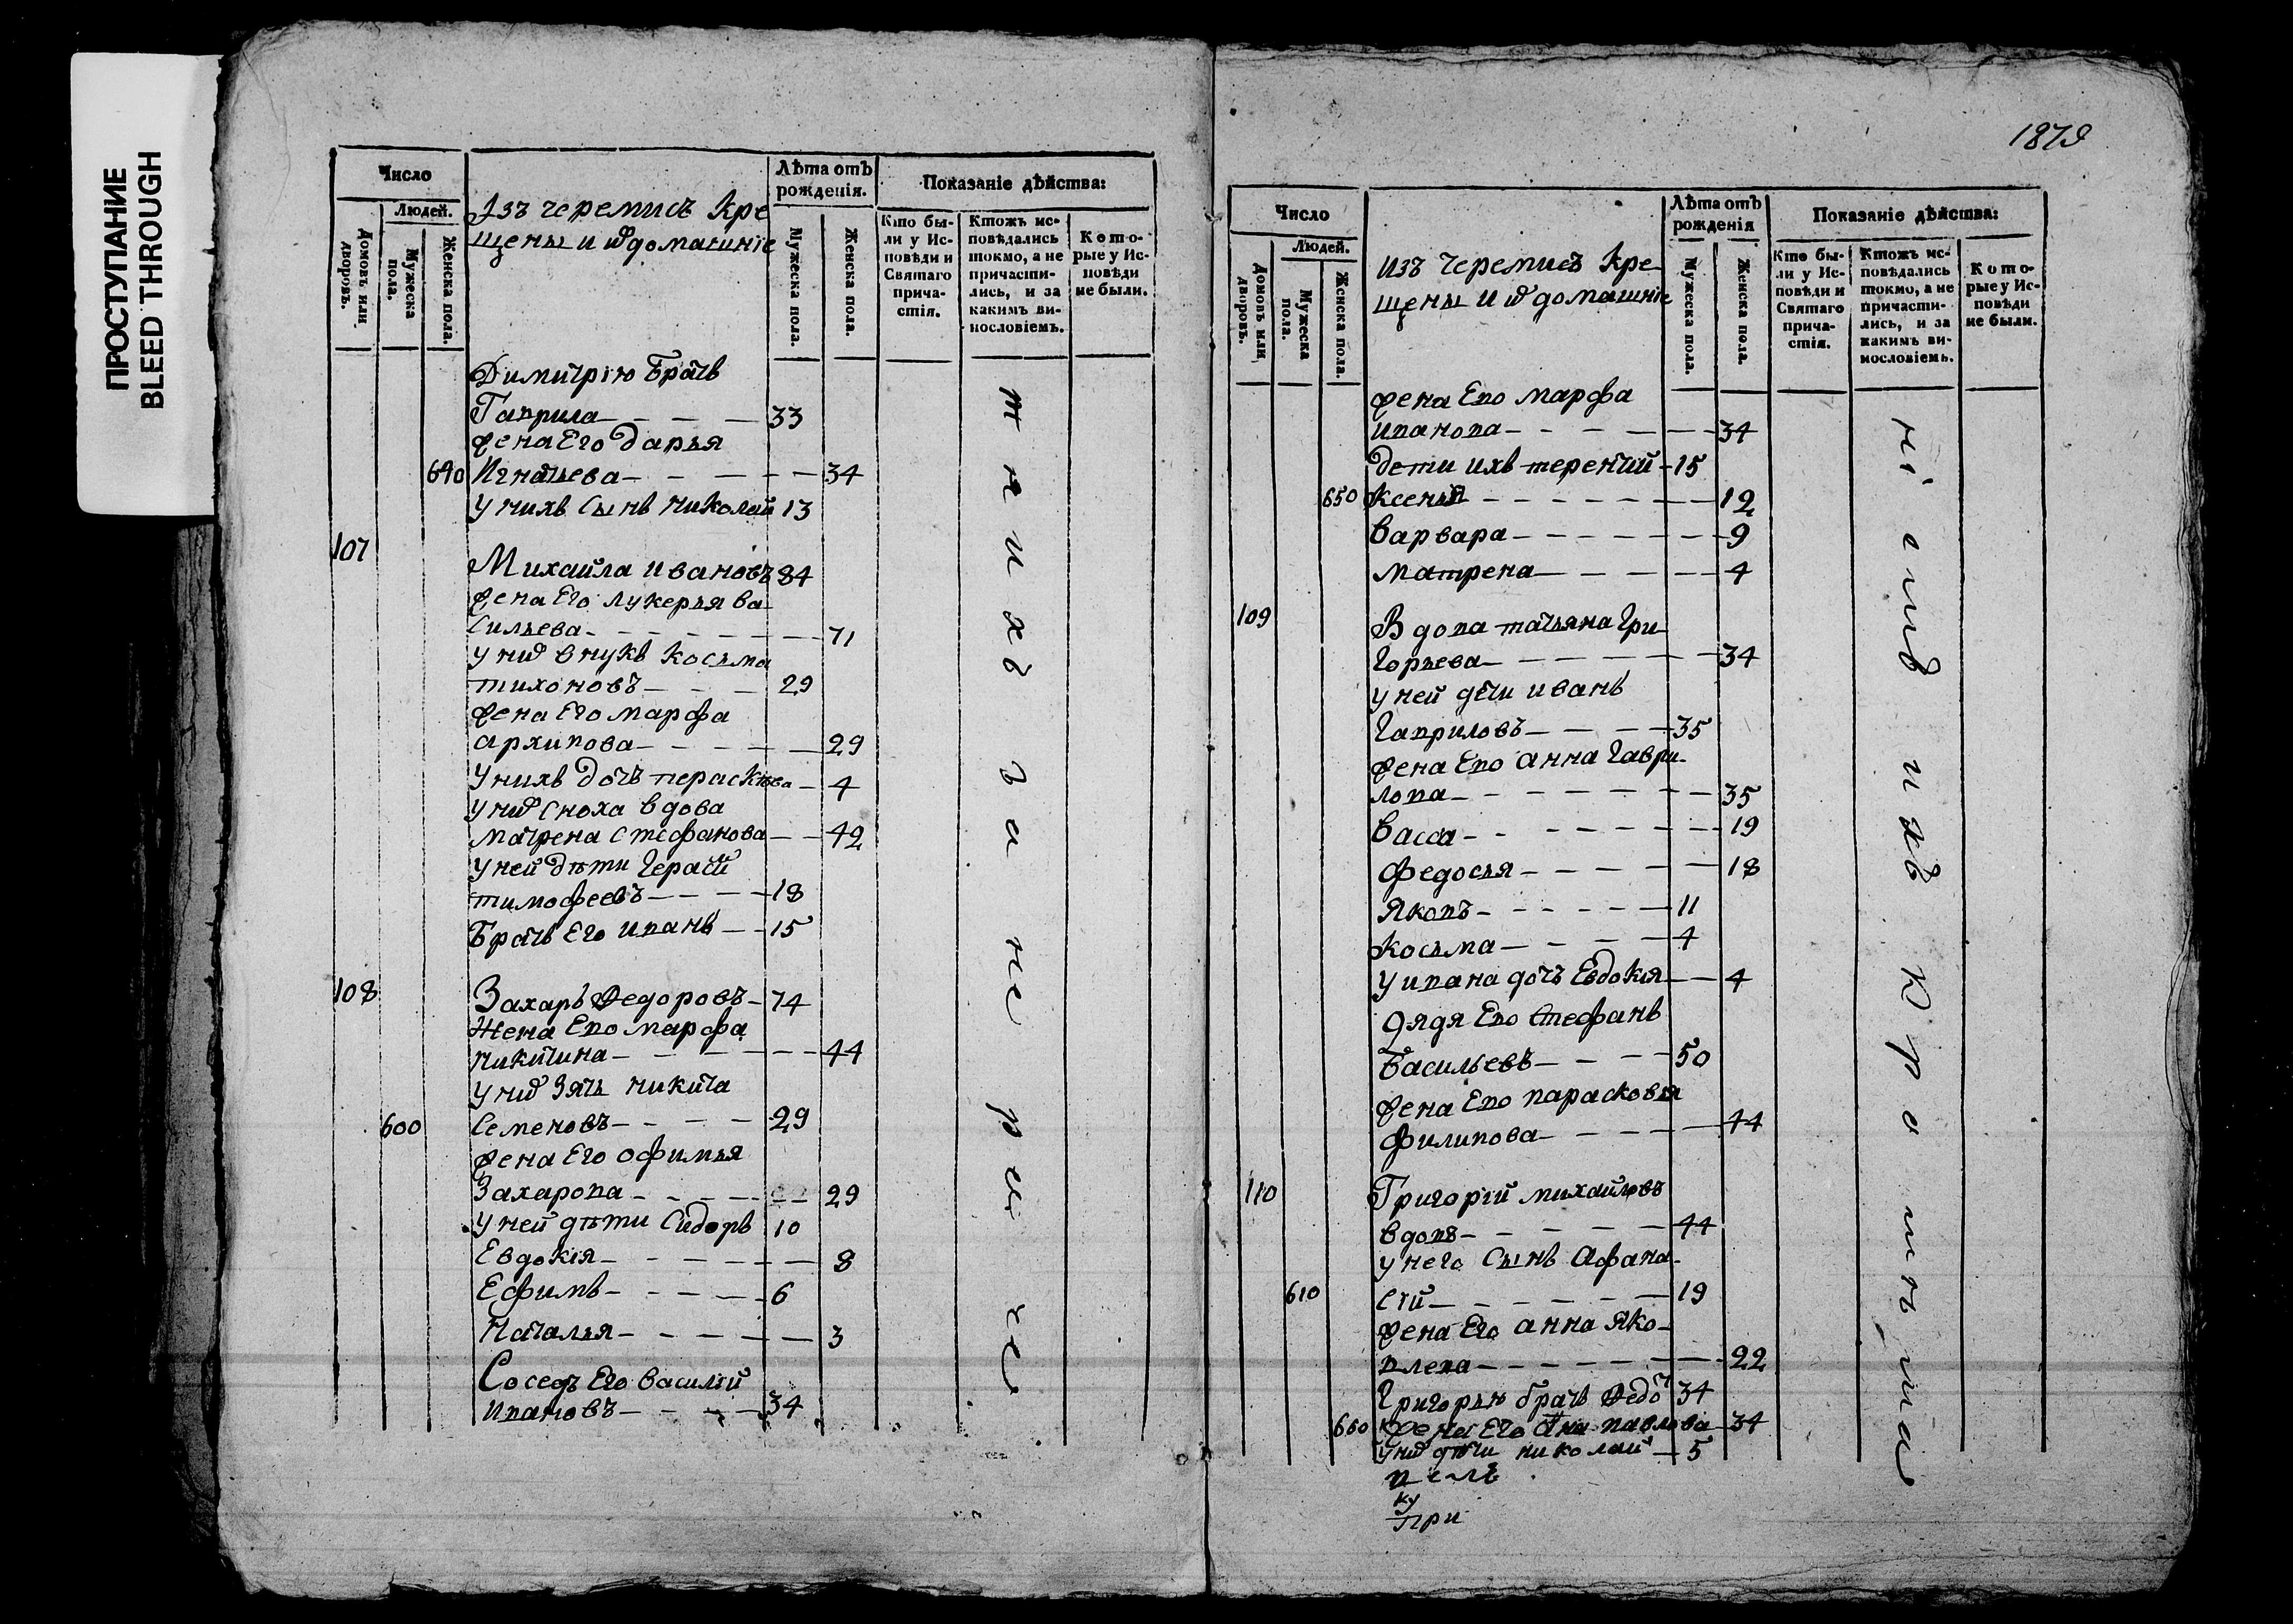 ПРОСТУПАНИЕ
BLEED THROUGH
Число
Людей.
Домовъ или дворовъ.
Мужеска пола.
Женска пола.
Изъ черемисъ Кре
щены и ихъ домашніе
Лѣта отъ рожденія.
Мужеска пола.
Женска пола.
Показаніе дѣйства:
Кто бы-
ли у Ис-
повѣди и
Святаго
прича-
стія.
Ктожъ ис-
повѣдались
токмо, а не
причасти-
лись, и за
какимъ ви-
нословіемъ.
Кото-
рые у Ис-
повѣди
не были.
Димитрію Братъ
Гаврила 33
жена Его Дарья
690 Игнатьева 34
у нихъ Сынъ николай 13
107
Михаила ивановъ 84
жена Его лукерья ва
Сильева 71
у них внукъ Косьма
тихоновъ 29
жена Его марфа
архипова 29
у нихъ дочъ пераскѣва 4
у них Сноха вдова
матрена Стефанова 42
у ней дѣти Гераси
тимофеевъ 18
Братъ Его иванъ 15
108
Захаръ Федоровъ 74
Жена Ево марфа
никитина 44
у них Зять никита
600 Семеновъ 29
жена Его офимья
Захарова 29
у ней дѣти Сидоръ 10
Евдокія 8
Ефимъ 6
Наталья 3
Соседъ Его василій
ивановъ 34
1879
Число
Людей.
Домовъ или дворовъ.
Мужеска пола.
Женска пола.
изъ черемисъ Кре
щены и ихъ домашніе
Лѣта отъ рожденія
Мужеска пола.
Женска пола.
Показаніе дѣйства:
Кто бы-
ли у Ис-
повѣди и
Святаго
прича-
стія.
Ктожъ ис-
повѣдались
токмо, а не
причасти-
лись, и за
какимъ ви-
нословіемъ.
Кото-
рые у Ис-
повѣди
не были.
жена Ево марфа
иванова 34
дети ихъ терентий 15
650 Ксенья 12
варвара 9
матрена 4
109
Вдова татьяна Гри
Горьева 34
у ней дѣти иванъ
Гавриловъ 35
жена Ево анна Гаври
лова 35
васса 19
федосья 18
Яковъ 11
Косьма 4
у ивана дочъ Евдокія 4
дядя Ево Стефанъ
Васильевъ 50
жена Ево парасковья
филипова 44
110
Григорій михайловъ
вдовъ 44
у него Сынъ Афана
610 сій 19
жена Его анна яко
влева 22
Григорью братъ Федо 34
660 жена Его Анна павлова 34
у них дѣти николай 5
при